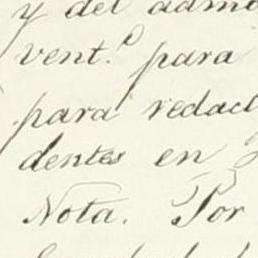 y del admi
vent.º para
para redac
dentes en
Nota. Por